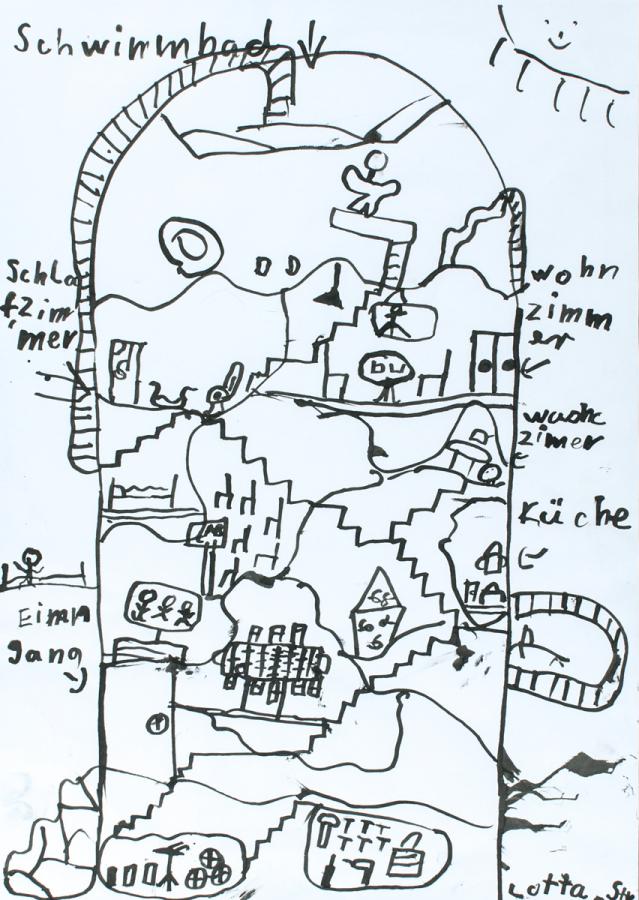 Schwimmbad
Schla
fzim
mer
wohn
zimm
er
wach
zimer
Küche
Eimn
gang
Lotta